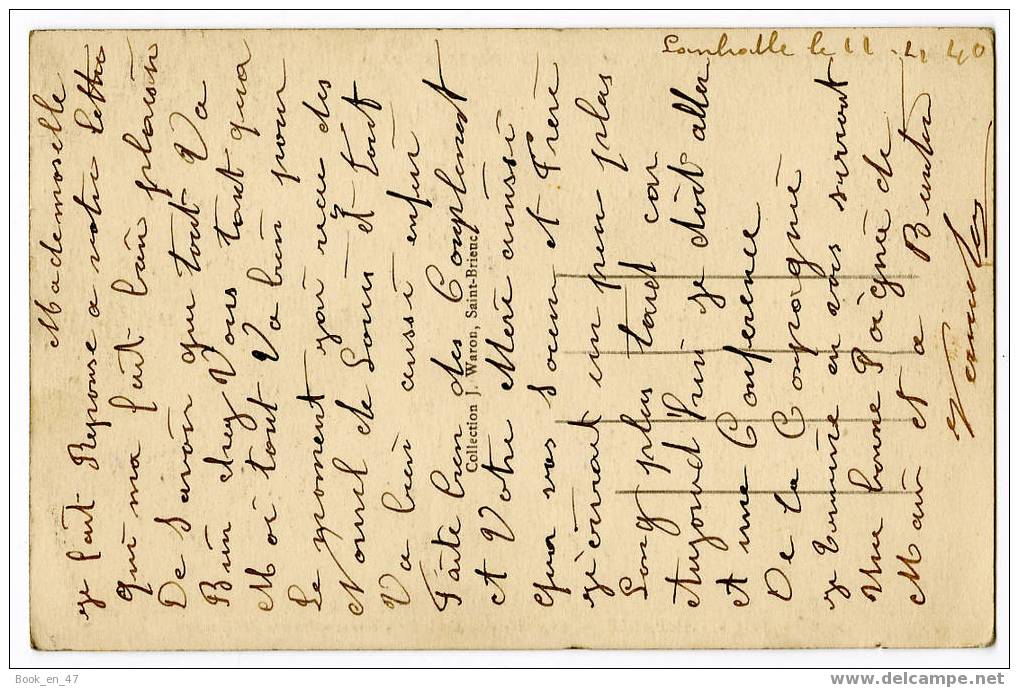 Lamballe le 11 . 2 40
Mademoiselle
je fait Reponse a votre lettre
qui ma fait bain plaisir
De Savoir que tout Va
Bien chez Vous tant qua
Moi tout Va bien pour
Le moment jai recu des
Nouvel de Louis Et tout
Va bien aussi enfin
Faite bien des Complimant
A Votre Mere ainssi
Qua vos Soeur et Frere
jécrirait un peu plus
Long plus tard car
Aujourd'hui je doit aller
A une Conference
De la Compagnie
je Termine en vous serrant
Une bonne Poigné de
Main Et a Bientot
Collection J. Waron, Saint-Brieuc
Book_en_47
delcampe.net